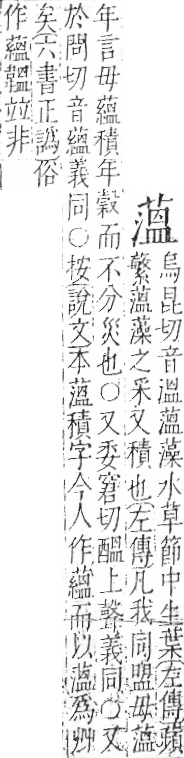 薀
烏昆切音溫薀藻水草節中生葉左傳蘋
蘩薀藻之采又積也左傳凡我同盟毋薀
年言毋蘊積年穀而不分災也○又委窘切醞上聲義同○又
於問切音蘊義同○按說文本薀積字今人作蘊而以薀爲艸
矣六書正譌俗
作蘊韞竝非